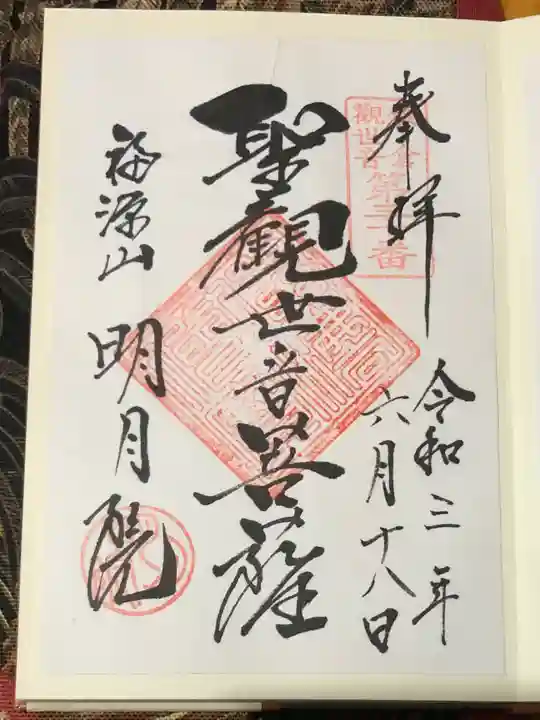 奉拝
令和三年
六月十八日
聖觀世音菩薩
福源山
明月院
觀世音第三十番